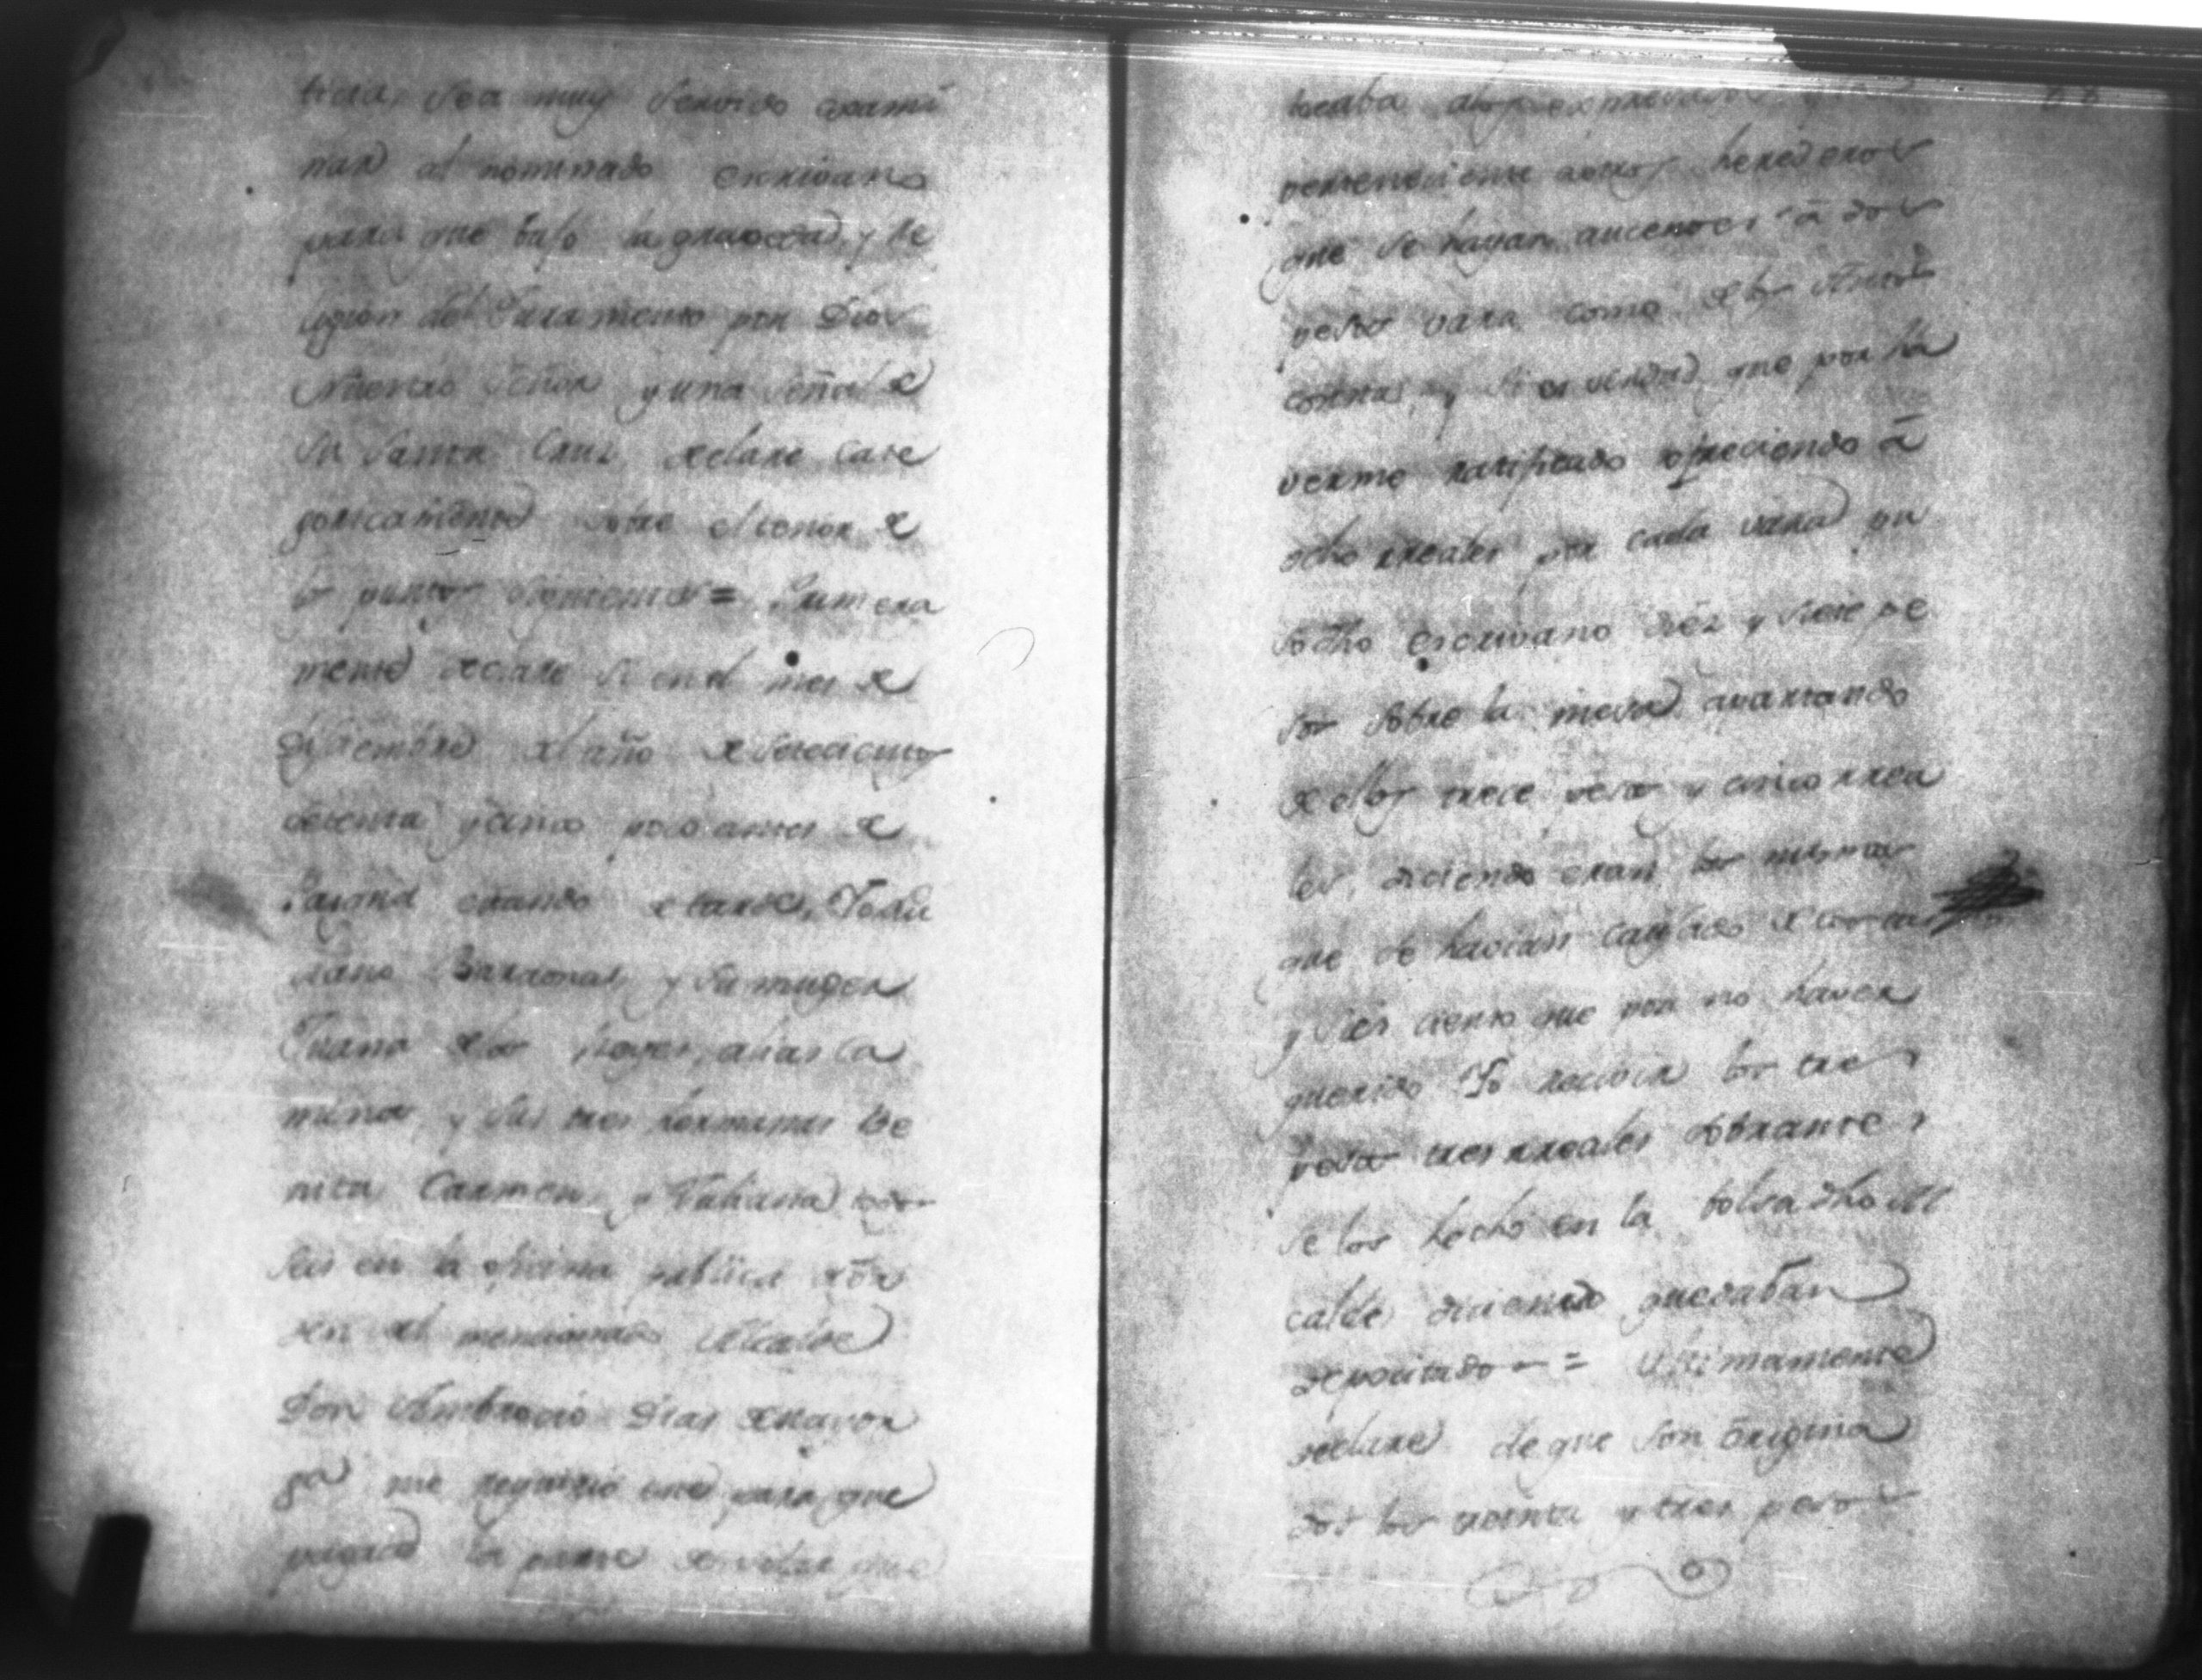 sea muy servido exami
nar al nominado escrivano
para que bajo la gravedad y Re
ligion del Juramento por Dios
Nuestro Señor y una señal de
su santa Cruz declare cate
goricamente sobre el tenor de
los puntos siguientes = Primera
mente declare si en el mes de
Diziembre del año de setecientos
setenta y cinco poco antes de
Pasqua estando de tarde,
y su muger
Juana de los Reyes, alias la
y sus tres hermanas Be
nita Carmen y Juliana todos
seis en la oficina publica
den del mencionado Alcalde
Don Ambrocio Dias
ga me requirio este para que
pagara la parte de solar que
tocaba
perteneciente a otros herederos
que se hayan aucentes â dos
pesos vara como de los
contra y si es verdad que por ha
verme ratificado ofreciendo â
ocho rreales por cada vara pu
so dho escrivano diez y siete pe
sos sobre la mesa apartando
de ellos trece pesos y cinco rrea
les, diciendo eran los mismos
que se havian de costas
y si es cierto que por no haver
querido Yo recivir los tres
pesos tres rreales sobrantes
se los hecho en la bolsa dho Al
calde diciendo quedaban
depocitados = Ultimamente
declare de que son origina
dos los treinta y tres pesos